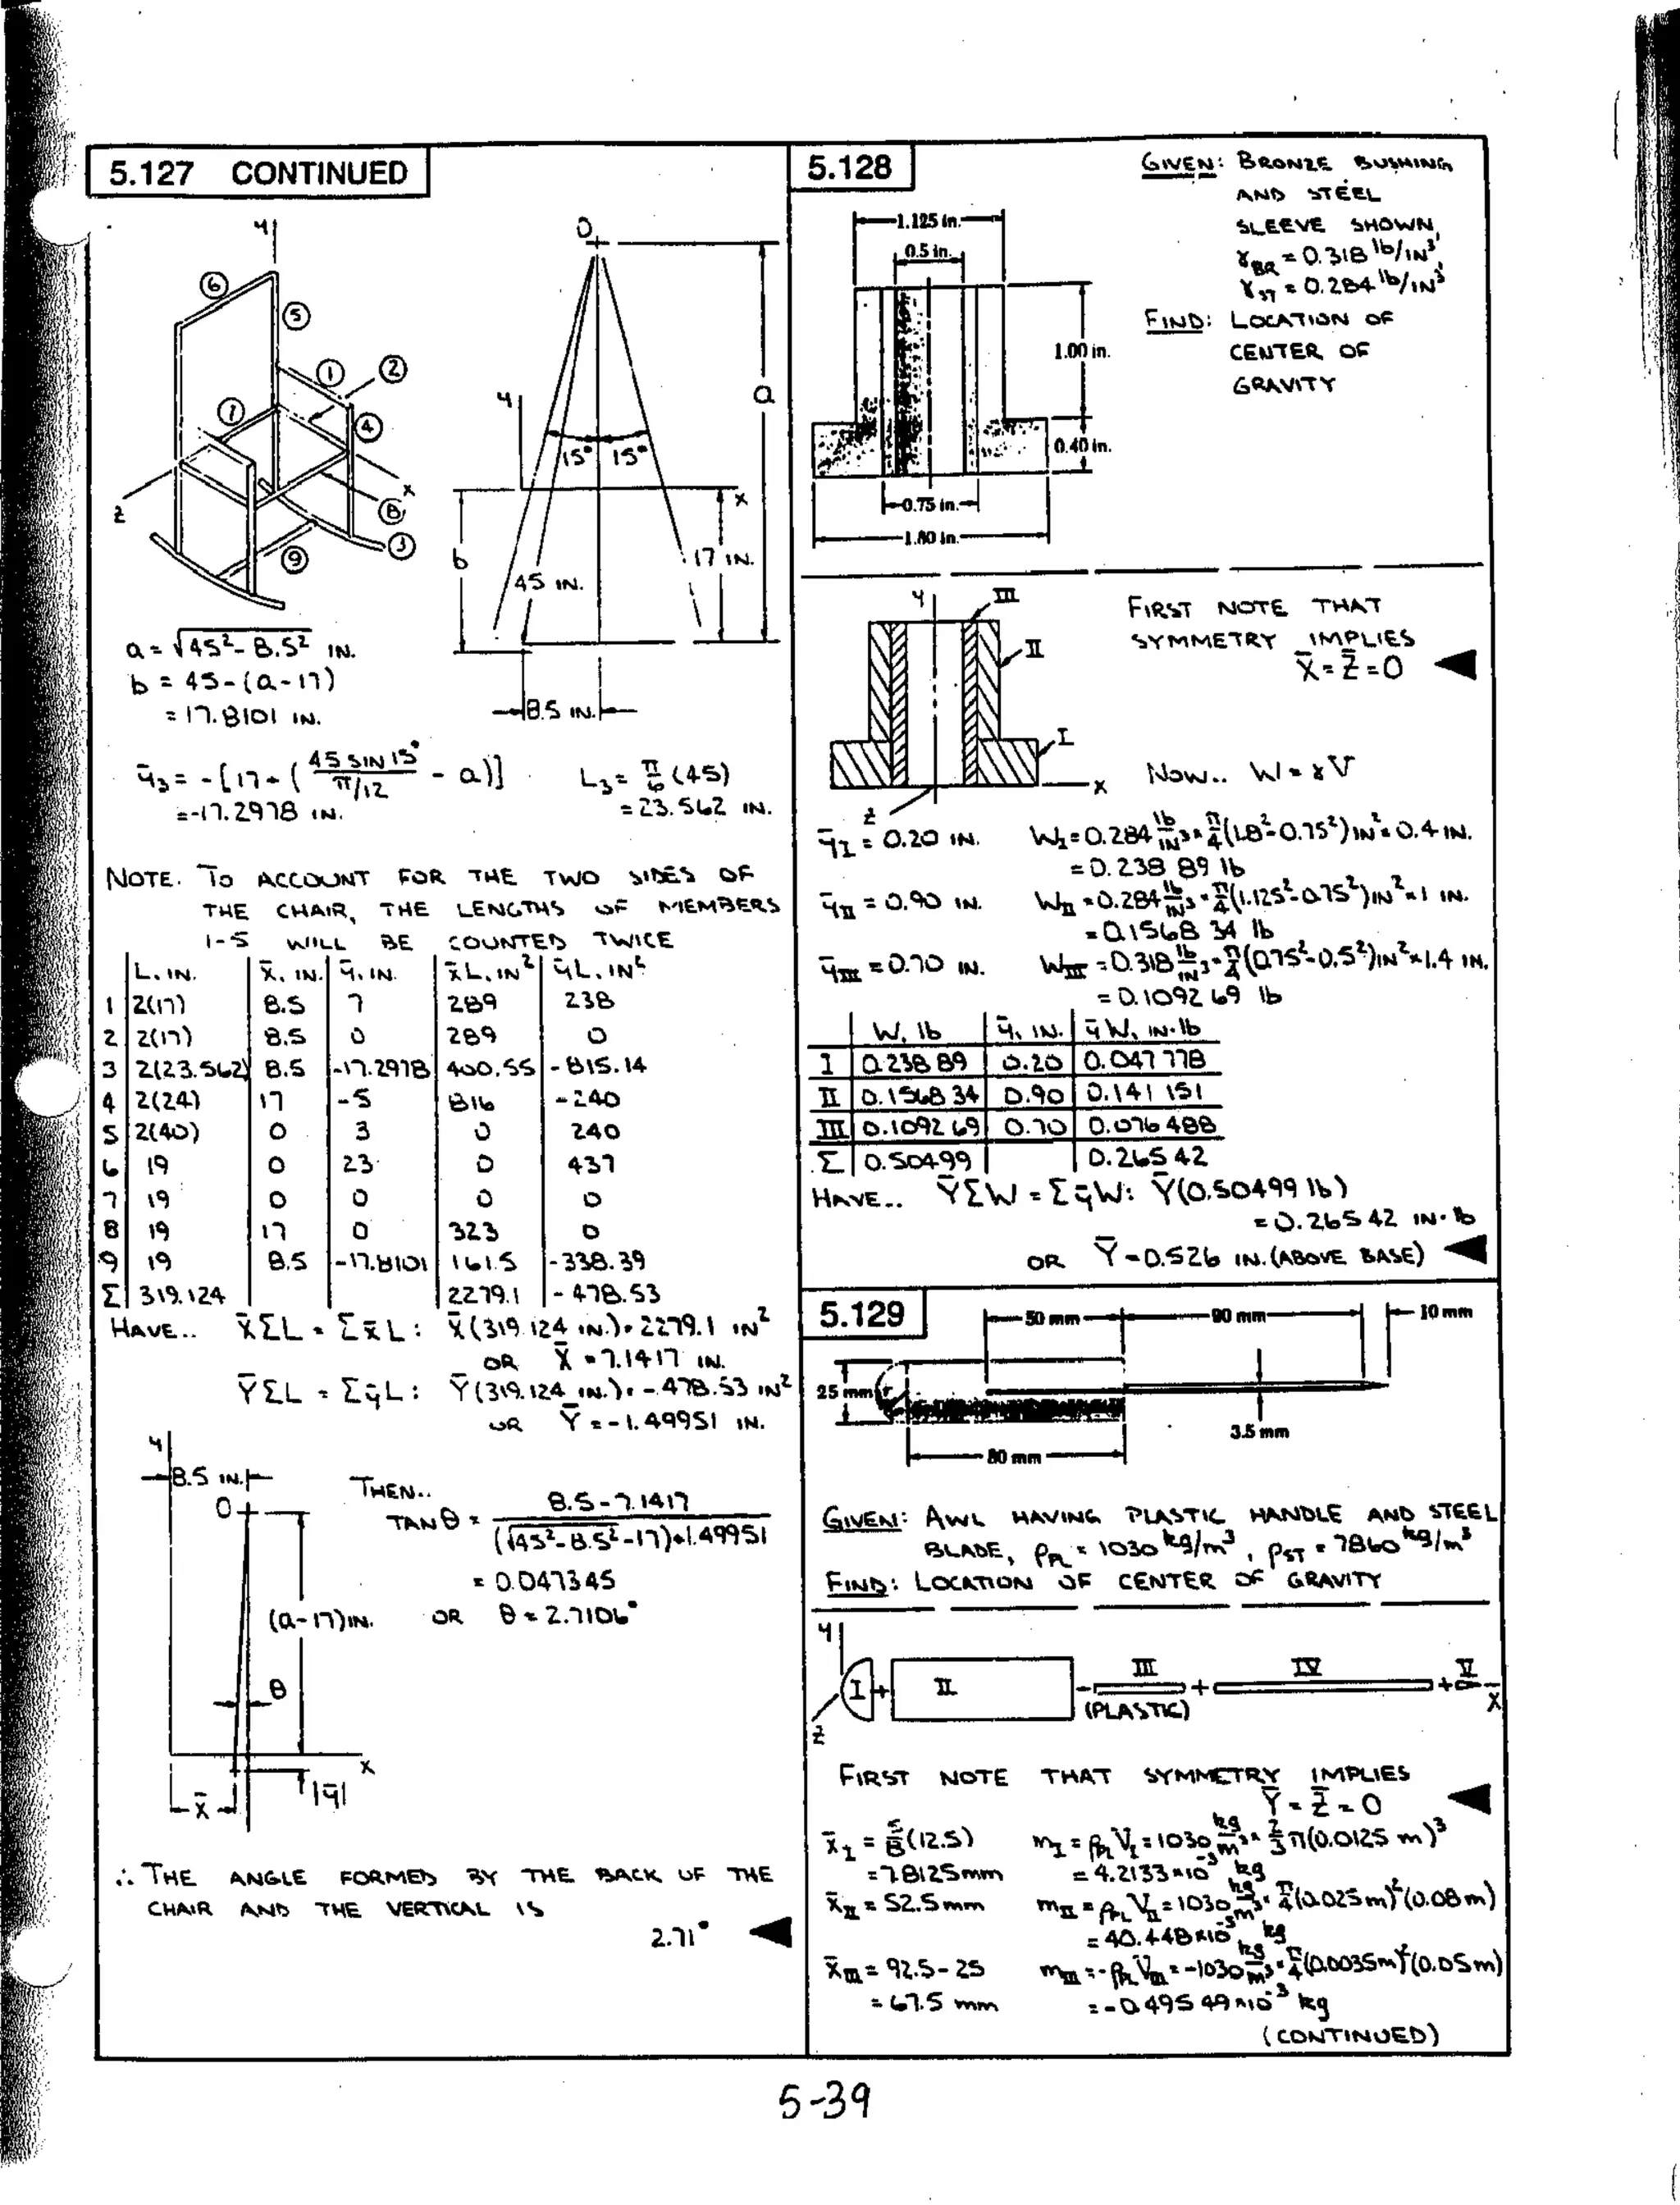 5.127 CONTINUED
y
6
5
1
2
7
4
x
8
z
3
9
O
a
y
15° 15°
x
b
17 IN.
45 IN.
8.5 IN.
a = √45²- 8.5² IN.
b = 45-(a-17)
= 17.8101 IN.
ȳ₃ = -[17+(45 SIN 15°/π/12 - a)]
= -17.2978 IN.
L₃ = π/6 (45)
= 23.562 IN.
NOTE. TO ACCOUNT FOR THE TWO SIDES OF
THE CHAIR, THE LENGTHS OF MEMBERS
1-5 WILL BE COUNTED TWICE
L, IN. x̄, IN. ȳ, IN. x̄L, IN² ȳL, IN²
1 2(17) 8.5 7 289 238
2 2(17) 8.5 0 289 0
3 2(23.562) 8.5 -17.2978 400.55 -815.14
4 2(24) 17 -5 816 -240
5 2(40) 0 3 0 240
6 19 0 23 0 437
7 19 0 0 0 0
8 19 17 0 323 0
9 19 8.5 -17.8101 161.5 -338.39
Σ 319.124 2279.1 -478.53
HAVE.. X̄ΣL = Σx̄L: X̄(319.124 IN.) = 2279.1 IN²
OR X̄ = 7.1417 IN.
ȲΣL = ΣȳL: Ȳ(319.124 IN.) = -478.53 IN²
OR Ȳ = -1.49951 IN.
y
8.5 IN.
O
(a-17)IN.
θ
x
X̄
|ȳ|
THEN..
TAN θ = 8.5-7.1417/(√45²-8.5²-17)+1.49951
= 0.047345
OR θ = 2.7106°
∴ THE ANGLE FORMED BY THE BACK OF THE
CHAIR AND THE VERTICAL IS
2.71° ◄
5.128
GIVEN: BRONZE BUSHING
AND STEEL
SLEEVE SHOWN,
γBR = 0.318 lb/IN³,
γST = 0.284 lb/IN³
FIND: LOCATION OF
CENTER OF
GRAVITY
1.125 in.
0.5 in.
1.00 in.
0.40 in.
0.75 in.
1.80 in.
y
III
II
I
x
z
FIRST NOTE THAT
SYMMETRY IMPLIES
X̄ = Z̄ = 0 ◄
NOW.. W = γV
ȳI = 0.20 IN. WI = 0.284 lb/IN³ × π/4(1.8²-0.75²)IN² × 0.4 IN.
= 0.238 89 lb
ȳII = 0.90 IN. WII = 0.284 lb/IN³ × π/4(1.125²-0.75²)IN² × 1 IN.
= 0.1568 34 lb
ȳIII = 0.70 IN. WIII = 0.318 lb/IN³ × π/4(0.75²-0.5²)IN² × 1.4 IN.
= 0.1092 69 lb
W, lb ȳ, IN. ȳW, IN·lb
I 0.238 89 0.20 0.047 778
II 0.1568 34 0.90 0.141 151
III 0.1092 69 0.70 0.076 488
Σ 0.50499 0.265 42
HAVE.. ȲΣW = ΣȳW: Ȳ(0.50499 lb)
= 0.265 42 IN·lb
OR Ȳ = 0.526 IN. (ABOVE BASE) ◄
5.129
50 mm 90 mm 10 mm
25 mm r
3.5 mm
80 mm
GIVEN: AWL HAVING PLASTIC HANDLE AND STEEL
BLADE, ρPL = 1030 kg/m³, ρST = 7860 kg/m³
FIND: LOCATION OF CENTER OF GRAVITY
y
I + II - III + IV + V
(PLASTIC)
x
z
FIRST NOTE THAT SYMMETRY IMPLIES
Ȳ = Z̄ = 0 ◄
x̄I = 5/8(12.5) mI = ρPL VI = 1030 kg/m³ × 2/3 π(0.0125 m)³
= 7.8125 mm = 4.2133×10⁻³ kg
x̄II = 52.5 mm mII = ρPL VII = 1030 kg/m³ × π/4(0.025 m)²(0.08 m)
= 40.448×10⁻³ kg
x̄III = 92.5-25 mIII = -ρPL VIII = -1030 kg/m³ × π/4(0.0035 m)²(0.05 m)
= 67.5 mm = -0.495 49×10⁻³ kg
(CONTINUED)
5-39